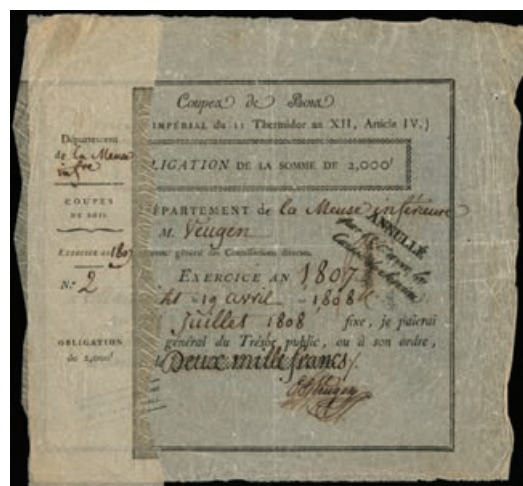 Département
de la Meuse
infre
COUPES
DE BOIS.
EXERCICE AN 1807
N.° 2
OBLIGATION
de 2,000f
Coupes de Bois
IMPÉRIAL du 11 Thermidor an XII, Article IV.)
LIGATION DE LA SOMME DE 2,000f
ÉPARTEMENT de la Meuse inférieure
M. Veugen
général des Contributions directes.
ANNULLÉ
EXERCICE AN 1807
19 avril 1808
Juillet 1808 fixe, je paîerai
général du Trésor public, ou à son ordre,
Deux mille francs